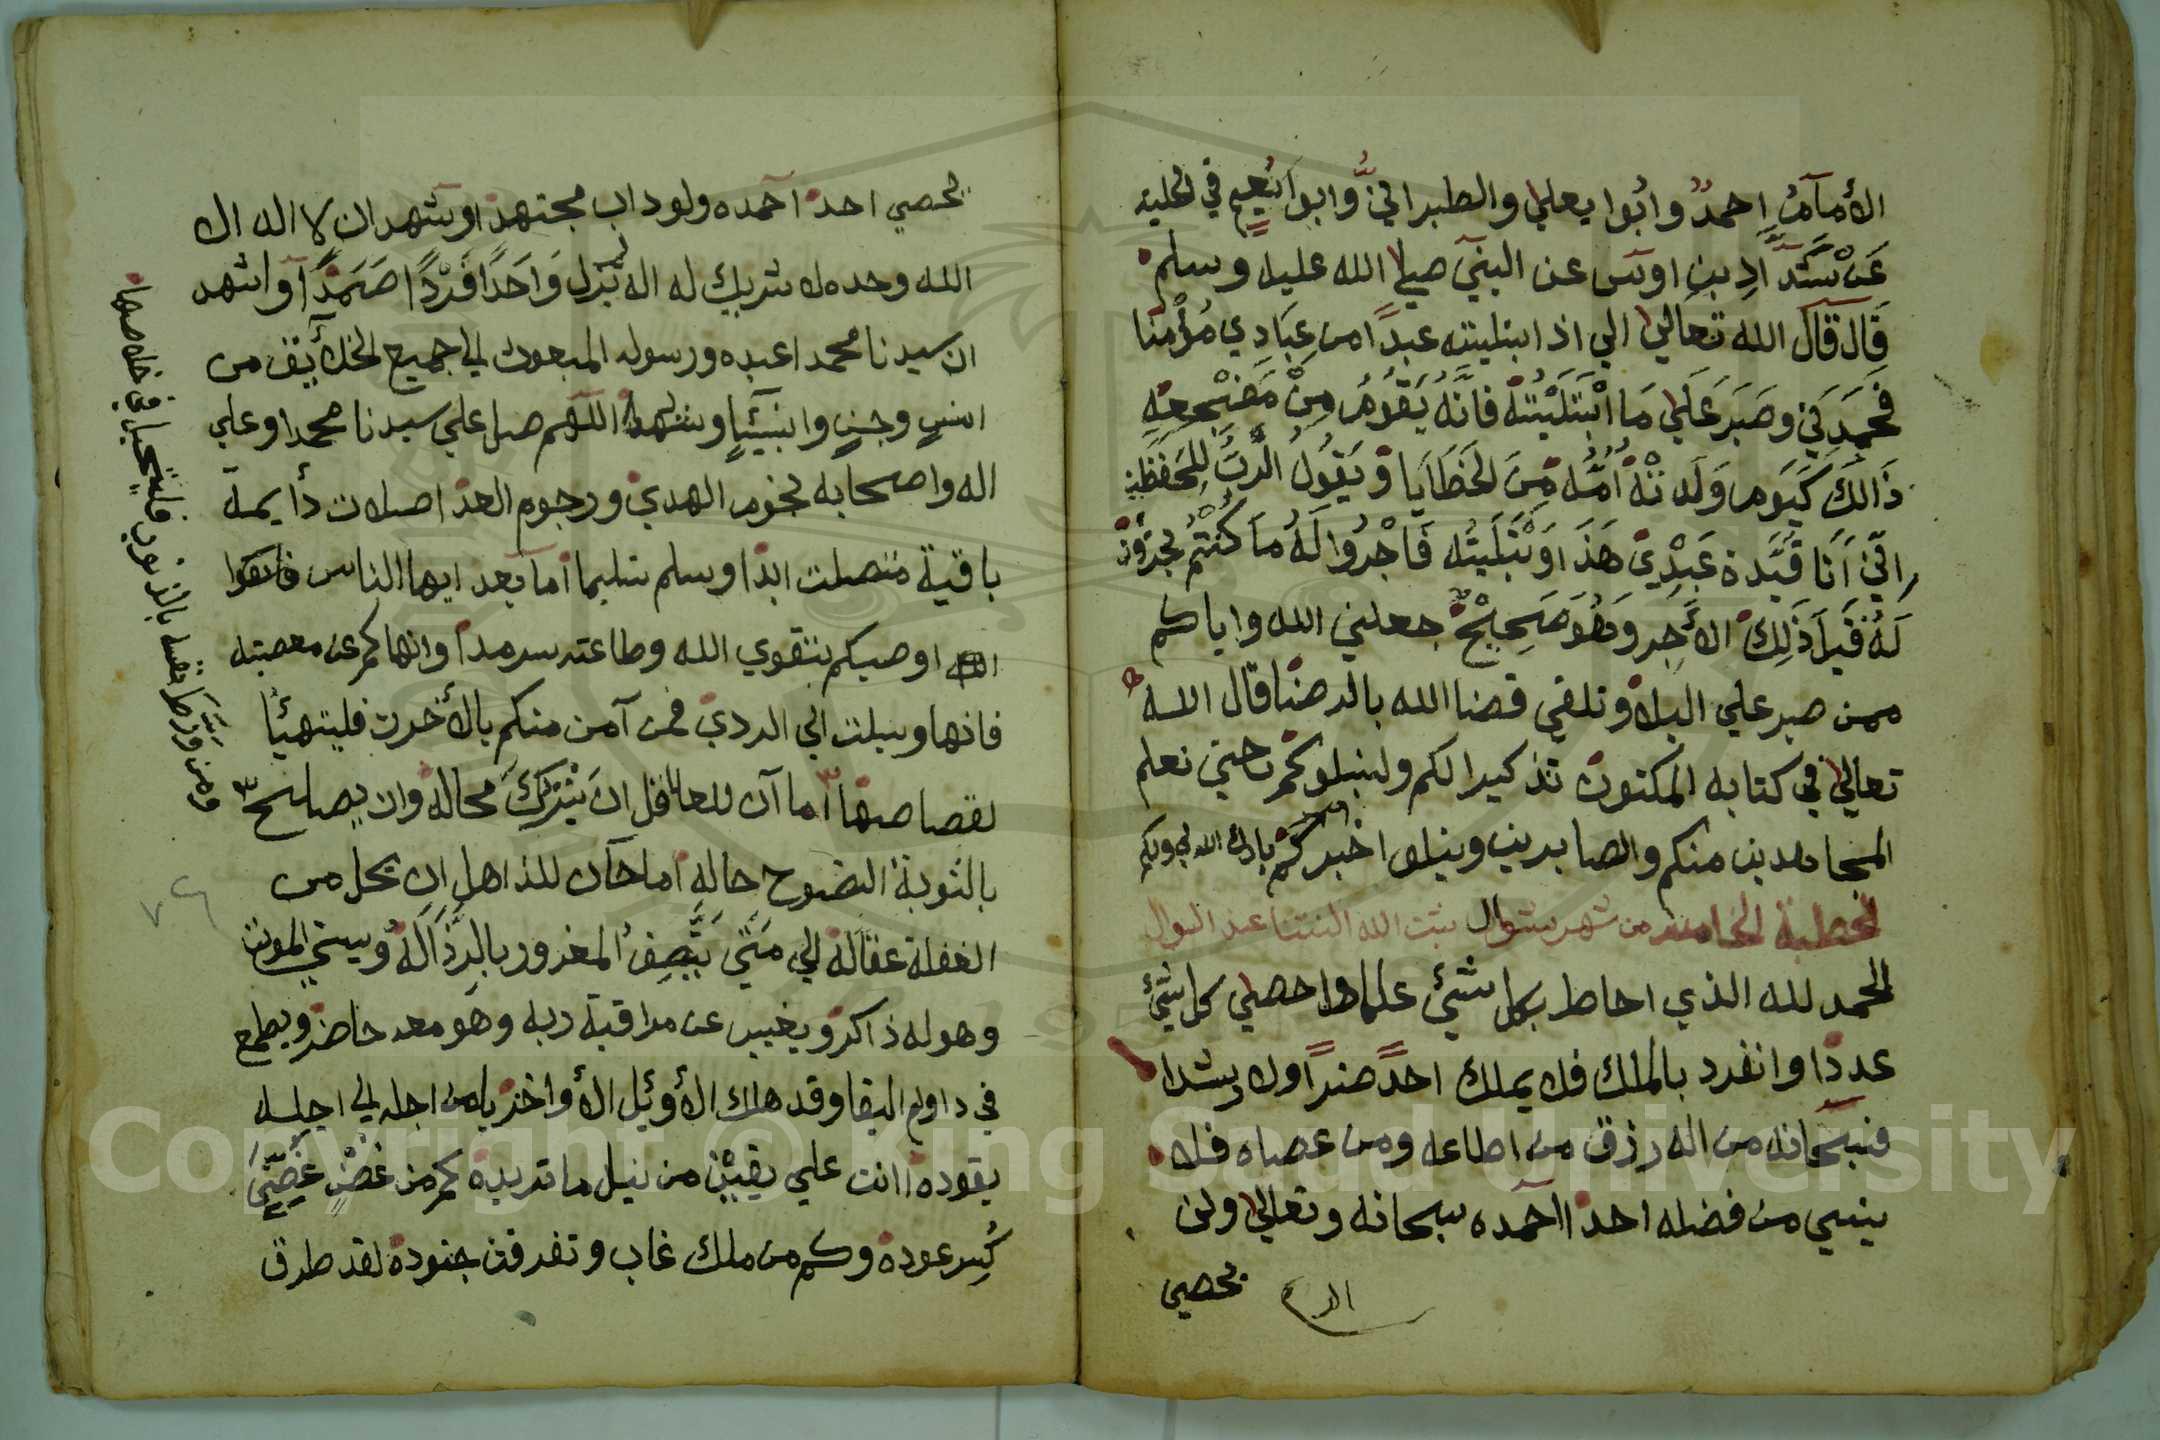 الأمآمُ احمدُ وابُوا يعلي والطبرانيُّ وابوا نُعيمٍ في الحلية
عَنْ شَدَّادِ بنِ اوسٍ عن النبيِّ صلي الله عليه وسلم
قَالَ قَآلَ الله تعالي اني اذا ابتليته عبدًا من عِبَادِي مُؤْمنًا
فَحَمِدَنِي وصَبَرَ عَلَي مَا ابْتَلَيْتُهُ فانَّهُ يَقُومُ مِنْ مَضْجعِهِ
ذَالكَ كَيَومِ وَلَدتْهُ اُمُّهُ مِنَ الخَطَايَا وَيَقُولُ الرَّبُّ لِلحَفَظَةِ
اِنِّي اَنَا قَيَّدة عَبْدِيْ هَذَا وَبْتَلَيتُه فَاجْرُوا لَهُ مَا كُنْتُمْ تجرُونَ
لَهُ قَبلَ ذَلِكَ الأَجِر وَهُوَ صَحِيحٌ جعلني الله واياكم
ممن صبر علي البلاء وتلقي قضا الله بالرضا قال الله
تعالي في كتابه المكنون تذكيرا لكم ولنبلونكم حتي نعلم
المجاهدين منكم والصابرين ونبلوا اخباركم بارك الله لي ولكم
الخطبة الخامسه من شهر شوال ثبت الله الستنا عند السوال
الحمد لله الذي احاط بكل شيئ علما واحصي كل شيئ
عددًا وانفرد بالملك فلا يملك احدً ضرًا ولا رشدا
فسبحانه من اله رزق من اطاعه ومن عصاه فلا
ينسي من فضله احدًا احمده سبحانه وتعالي ولن
يحصي
يحصي احدً احمده ولو داب مجتهدًا وشهد ان لا اله الا
الله وحده لا شريك له اله لم يزل وَاحَدًا فَرْدًا صَمَدًا واشهد
ان سيدنا محمدا عبده ورسوله المبعوث الي جميع الخلأيق من
انسٍ وجنٍ وانبيآئيا وشهدا اللهم صل علي سيدنا محمدا وعلي
اله واصحابه نجوم الهدي ورجوم العدا صلات دأيمة
باقية متصلت ابدًا وسلم تسليما اما بعد ايها الناس فاتقوا
الله اوصيكم بتقوي الله وطاعته سرمدًا وانهاكم عن معصيته
فانها وسلت الي الردي فمن آمن منكم بالأخرت فليتهيئا
لقصاصها اما آن للعاقل ان يَتْرُكَ محاله وان يصالح
بالتوبة النصوح حاله اما حآن للذاهل ان يحل من
الغفلة عقاله الي مَتَي يَتَّصِفُ المغرور بالرَّذَالَهُ وينسي الموت
وهو له ذاكرٌ ويغيب عن مراقبة ربه وهو معه حاضرٌ ويطمع
في داوم البقا وقد هلك الأوئيل الأواخر يامن اجله الي اجله
يقوده اانت علي يقينٍ من نيل ما تريده كم من غُصْنٍ غَضٍّ
كُسِر عوده وكم من ملك غاب وتفرقت جنوده لقد طرق